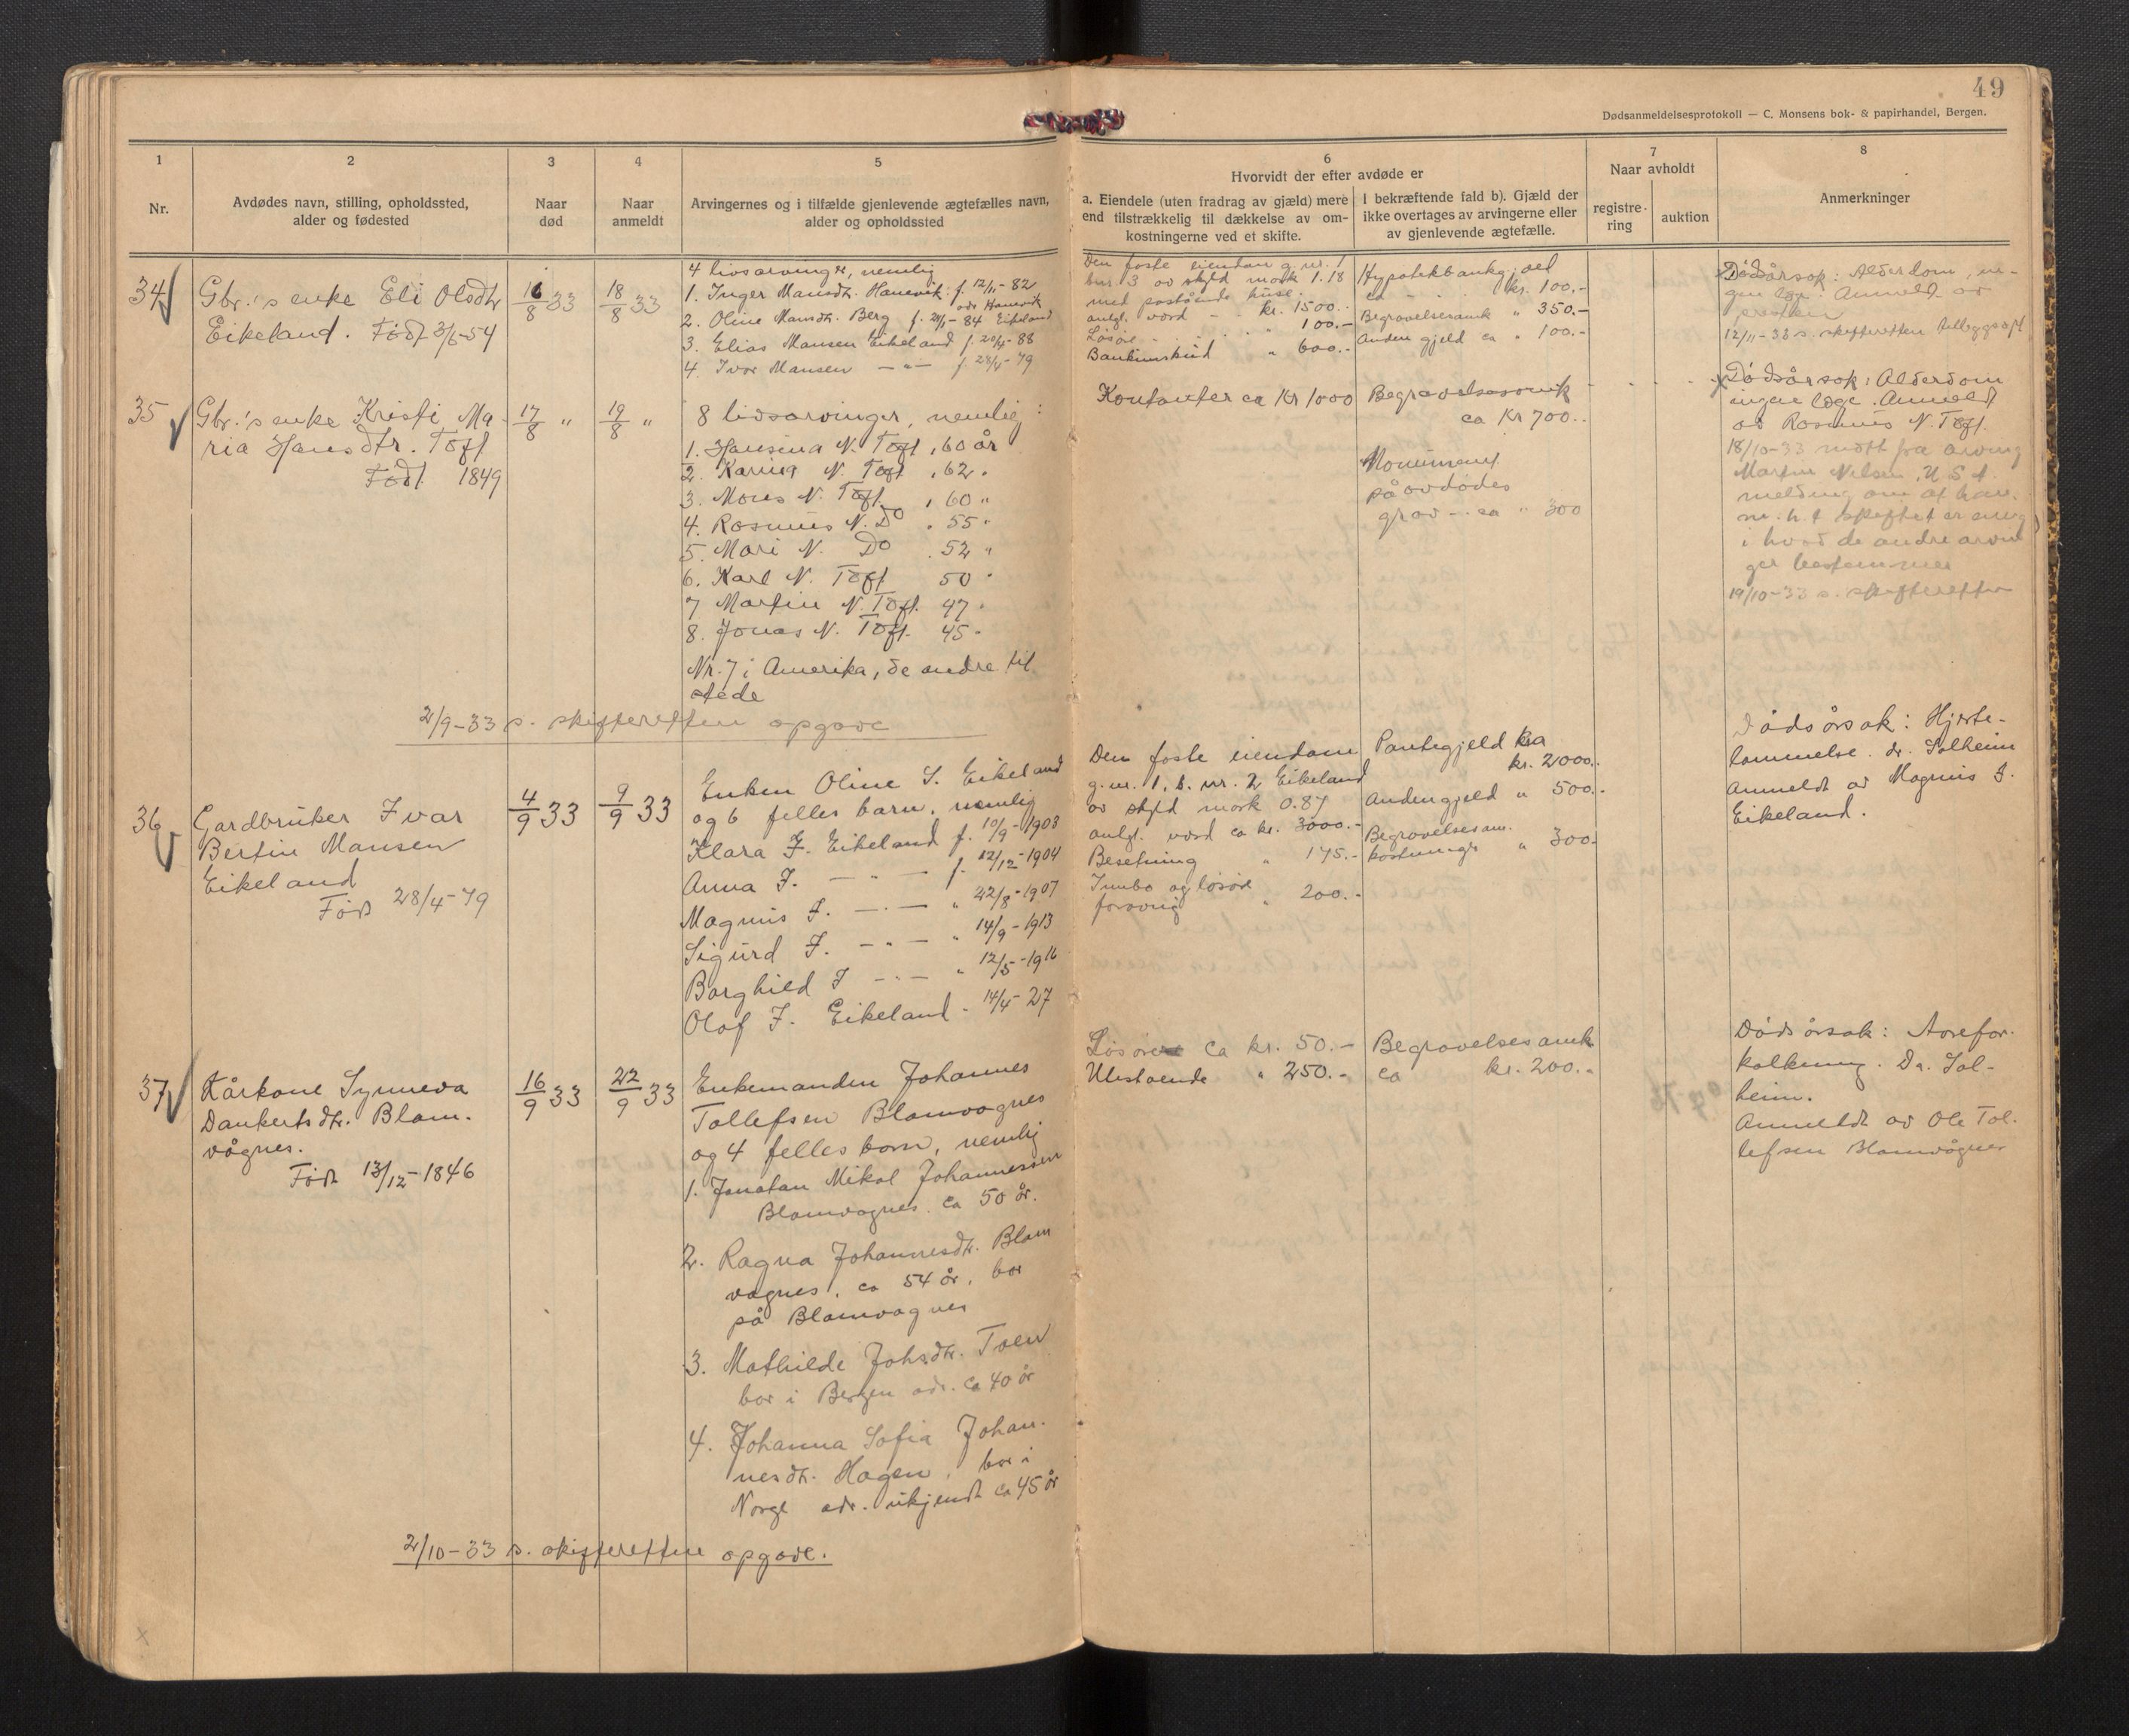 49
Dødsanmeldelsesprotokoll — C. Monsens bok- & papirhandel, Bergen.
1
Nr.
2
Avdødes navn, stilling, opholdssted,
alder og fødested
3
Naar
død
4
Naar
anmeldt
5
Arvingernes og i tilfælde gjenlevende ægtefælles navn,
alder og opholdssted
6
Hvorvidt der efter avdøde er
a. Eiendele (uten fradrag av gjæld) mere
end tilstrækkelig til dækkelse av om-
kostningerne ved et skifte.
I bekræftende fald b). Gjæld der
ikke overtages av arvingerne eller
av gjenlevende ægtefælle.
7
Naar avholdt
registre-
ring
auktion
8
Anmerkninger
34
Gbr.'s enke Eli Olsdtr
Eikeland. Født 3/6-54
16/8 33
18/8 33
4 livsarvinger, nemlig
1. Inger Mansdtr. Hanevik f. 12/11-82
adr Hanevik
2. Oline Mansdtr. Berg f. -84 Eikeland
3. Elias Mansen Eikeland f. 20/4-88
4. Ivar Mansen — " — f. 28/4-79
Den faste eiendom g.nr. 1
bnr. 3 av skyld mark 1.18
med påstående huse.
antgl. verd - - kr. 1500.-
Løsøre . . . " 100.-
Bankinnskud " 600.-
Hypotekbankgjæld
ca - - - kr. 100.-
Begravelsesomk " 350.-
Anden gjeld ca " 100.-
Dødsårsak: Alderdom, in-
gen læge. Anmeldt av
12/11-33 s. skifteretten tilleggsopg
35
Gbr.'s enke Kristi Ma-
ria Hansdtr. Toft
Født 1849
17/8 "
19/8 "
8 livsarvinger, nemlig:
1. Hansina N. Toft, 60 år
2. Karina N. Toft, 62 "
3. Mons N. Toft, 60 "
4. Rasmus N. Do " 55 "
5. Mari N. Do . 52 "
6. Karl N. Toft 50 "
7 Martin N. Toft. 47 "
8. Jonas N. Toft. 45 "
Nr. 7 i Amerika, de andre til
stede
Kontanter ca Kr 1000
Begravelsesomk
ca Kr 700.-
Monument
på avdødes
grav - - ca " 300
Dødsårsak: Alderdom
ingen læge. Anmeldt
av Rasmus N. Toft.
18/10-33 mott fra arving
Martin Nilsen, U.S.A.
melding om at han
m.h.t skiftet er enig
i hvad de andre arvin
ger bestemmer
19/10-33 s. skifteretten
2/9-33 s. skifteretten opgave
36
Gardbruker Ivar
Bertin Mansen
Eikeland
Født 28/4-79
4/9 33
9/9 33
Enken Oline S. Eikeland
og 6 felles barn, nemlig
Klara I. Eikeland f. 10/9-1903
Anna I. — " — f. 12/12-1904
Magnus I. — " — " 22/8-1907
Sigurd I. — " — " 14/9-1913
Borghild I — " — " 12/5-1916
Olaf I. Eikeland - 14/4-27
Den faste eiendom
g.nr. 1, b.nr. 2 Eikeland
av skyld mark 0.87
antgl. verd ca kr. 3000.-
Besetning " 175.-
Innbo og løsøre
forøvrig " 200.-
Pantegjeld
kr. 2000.-
Anden gjeld " 500.-
Begravelsesom.
kostninger " 300.-
Dødsårsak: Hjerte-
lammelse. dr. Solheim
Anmeldt av Magnus I.
Eikeland.
37
Kårkone Synneva
Dankertsdtr. Blom-
vågnes.
Født 13/12-1846
16/9 33
22/9 33
Enkemanden Johannes
Tollefsen Blomvågnes
og 4 felles barn, nemlig
1. Jonatan Mikal Johannessen
Blomvågnes. ca 50 år.
2. Ragna Johannesdtr. Blom
vågnes, ca 54 år, bor
på Blomvågnes
3. Mathilde Johsdtr. Tveit
bor i Bergen adr. ca 40 år
4. Johanna Sofia Johan-
nesdtr. Hagen, bor i
Norge adr. ukjendt ca 45 år
Løsøre ca kr. 50.-
Utestående " 250.-
Begravelsesomk
ca kr. 200.-
Dødsårsak: Årefor-
kalkning. Dr. Sol-
heim.
Anmeldt av Ole Tol-
lefsen Blomvågnes
2/10-33 s. skifteretten opgave.